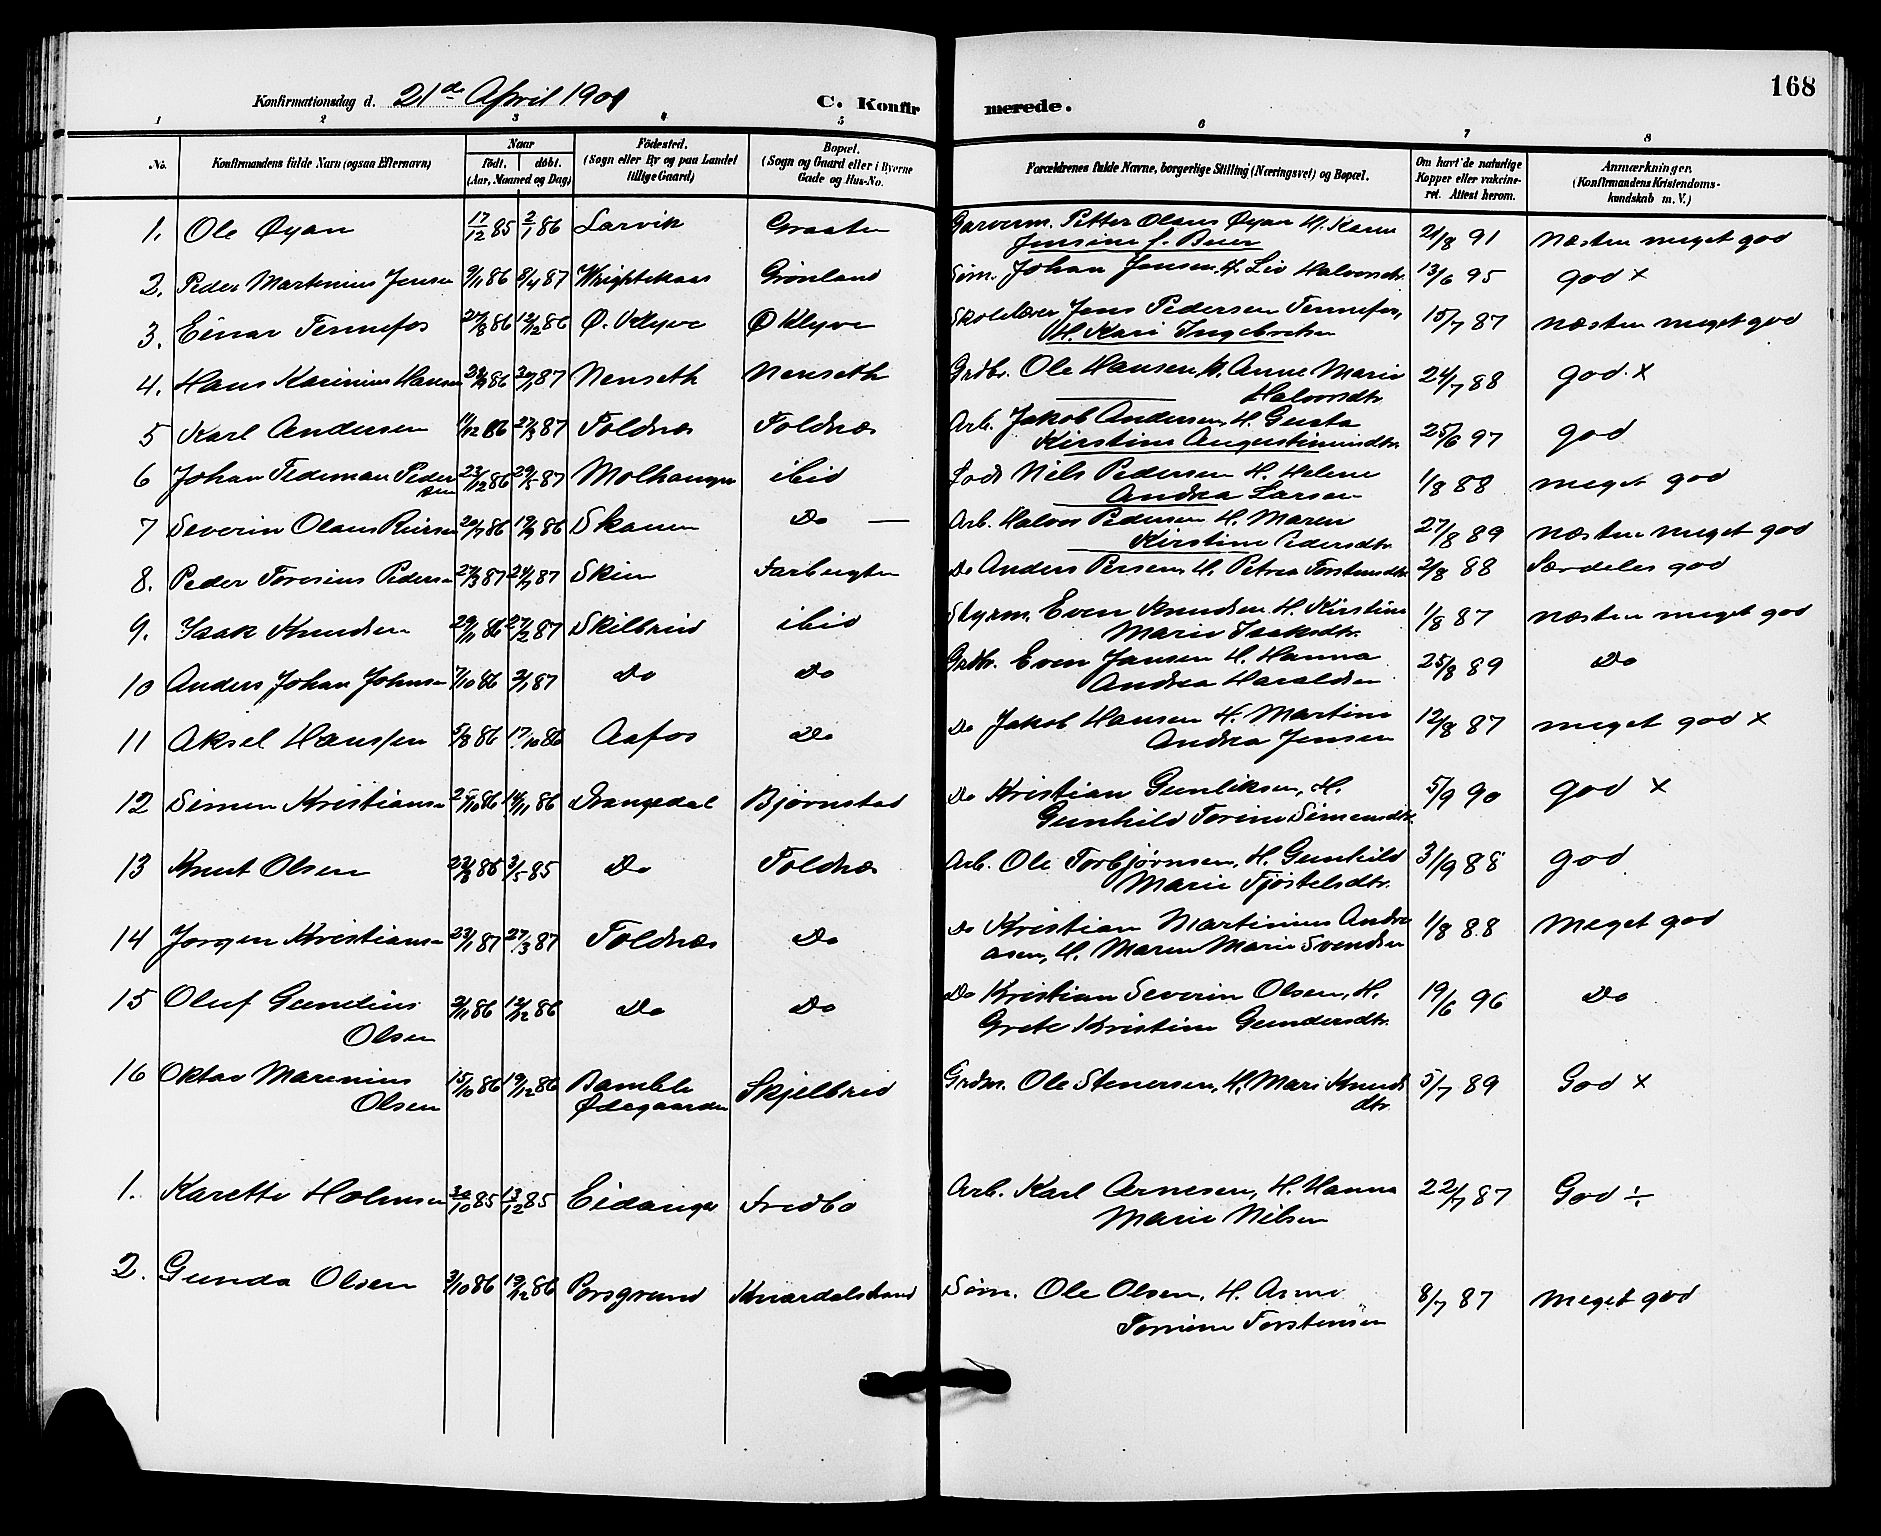 168
Konfirmationsdag d. 21de April 1901 C. Konfirmerede.
1 2 3 4 5 6 7 8
No. Konfirmandens fulde Navn (ogsaa Efternavn) Naar födt. döbt. (Aar, Maaned og Dag) Födested. (Sogn eller By og paa Landet tillige Gaard) Bopæl. (Sogn og Gaard eller i Byerne Gade og Hus-No. Forældrenes fulde Navne, borgerlige Stilling (Næringsvei) og Bopæl. Om havt de naturlige Kopper eller vakcineret. Attest herom. Anmærkninger. (Konfirmandens Kristendomskundskab m. V.)
1. Ole Øyan 17/12 85 2/1 86 Larvik Graaten Garverm. Petter Olaus Øyan H. Karen Jensine f. Beier 21/8 91 næsten meget god
2. Peder Martinius Jensen 9/11 86 8/4 87 Grønland Søm. Johan Jensen H. Liv Halvorsdtr. 13/6 95 god x
3. Einar Tennefos 27/8 86 12/12 86 Ø. Klyve Ø Klyve Skolelærer Jens Pedersen Tennefos, H. Kari Ingebretsen 15/7 87 næsten meget god
4. Hans Karinius Hansen 86 87 Nenseth Nenseth Grdbr. Ole Hansen H. Anne Marie Halvorsdtr. 24/7 88 god. x
5 Karl Andersen 11/12 86 27/3 87 Foldnæs Foldnæs Arb. Jakob Andersen, H. Gusta Kirstine Augustinusdtr. 25/6 97 god
6 Johan Tideman Pedersen 23/12 86 29/5 87 Molhaugen ibid Lods Nils Pedersen H. Helene Andrea Larsen 1/8 88 meget god
7 Severin Olaus Reiersen 20/7 86 86 Skauen Do — Arb. Halvor Pedersen H. Maren Kirstine Pedersdtr. 27/8 89 næsten meget god
8. Peder Toresius Pedersen 87 87 Skien Do Anders Persen, H. Petrea Torstensdtr. 2/8 88 Særdeles god
9. Isak Knudsen 29/11 86 27/2 87 Skilbred ibid Styrm. Even Knudsen H. Kirstine Marie Isaksdtr. 1/8 87 næsten meget god
10 Anders Johan Johnsen 7/10 86 2/1 87 Do Do Grdbr. Even Jansen H. Hanna Andrea Haraldsen 25/8 89 Do
11 Aksel Hanssen 5/8 86 17/10 86 Aafos Do Do Jakob Hansen H. Martine Andrea Jensen 12/8 87 meget god x
12 Simen Kristiansen 25/10 86 14/11 86 Drangedal Bjørnstad Do Kristian Gunliksen, H. Gunhild Torine Simensdtr. 5/9 90 god x
13 Knut Olsen 85 3/5 85 Do Foldnæs Arb. Ole Torbjørnsen, H. Gunhild Marie Tjøstelsdtr. 3/9 88 god
14 Jørgen Kristiansen 23/1 87 27/3 87 Foldnæs Do Do Kristian Martinius Andreasen, H. Maren Marie Svendsen 1/8 88 meget god
15 Oluf Gundius Olsen 2/11 86 12/12 86 Do Do Do Kristian Severin Olsen, H. Grete Kristine Gundersdtr. 19/6 96 Do
16 Oktav Marenius Olsen 15/10 86 19/12 86 Bamble Ødegaarden Skjelbred Grdm. Ole Stenersen, H. Mari Knudsdtr. 5/7 89 God x
1. Karette Holmsen 30/10 85 13/12 85 Eidanger Fredbo Arb. Karl Arnesen, H. Hanna Marie Nilsen 22/7 87 God ÷
2. Gunda Olsen 3/10 86 19/12 86 Porsgrund Knardalstrand Søm. Ole Olsen, H. Anne Torstensen 8/7 87 meget god